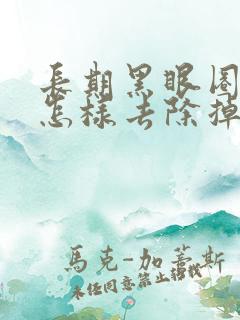 長期黑眼圈
怎樣去除掉
馬克-加蒂斯
未任同意禁止轉載